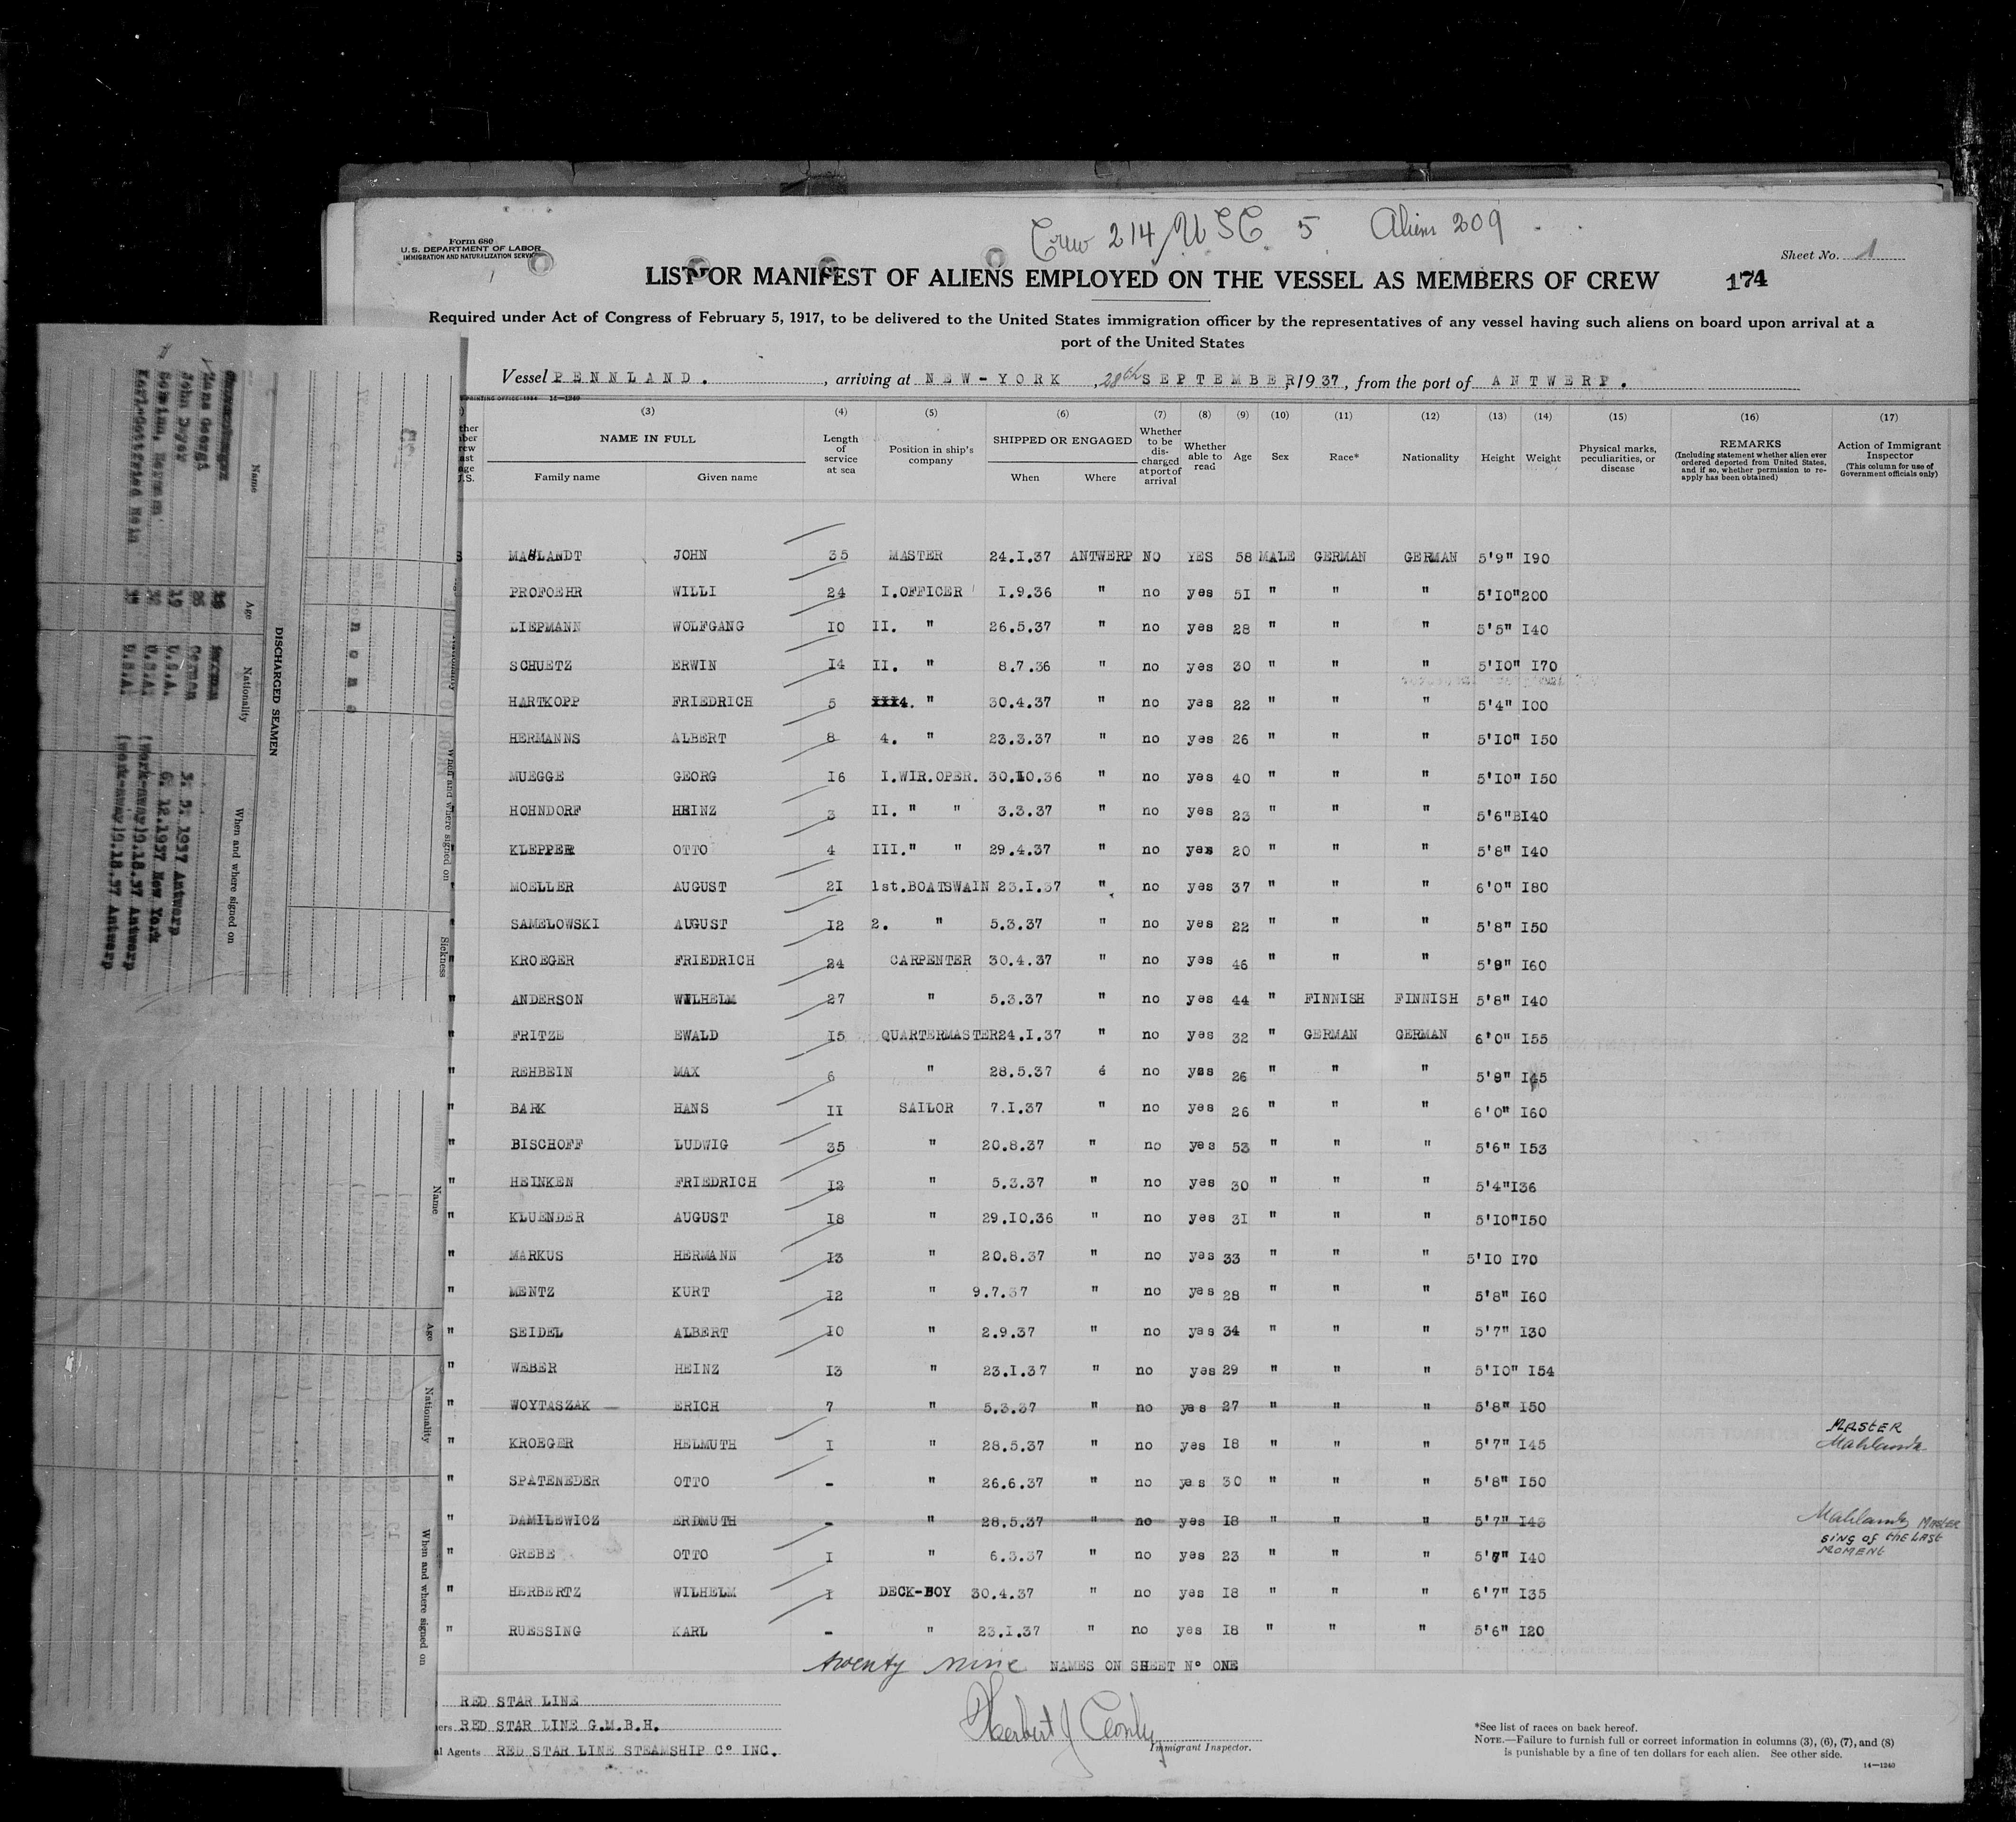 Crew 214/USC. 5 Aliens 209
Form 680
U. S. DEPARTMENT OF LABOR
IMMIGRATION AND NATURALIZATION SERVICE
Sheet No. 1
LIST OR MANIFEST OF ALIENS EMPLOYED ON THE VESSEL AS MEMBERS OF CREW 174
Required under Act of Congress of February 5, 1917, to be delivered to the United States immigration officer by the representatives of any vessel having such aliens on board upon arrival at a
port of the United States
Vessel PENNLAND. , arriving at NEW-YORK , 28th SEPTEMBER, 1937, from the port of ANTWERP.
(3) (4) (5) (6) (7) (8) (9) (10) (11) (12) (13) (14) (15) (16) (17)
NAME IN FULL Length of service at sea Position in ship's company SHIPPED OR ENGAGED Whether to be discharged at port of arrival Whether able to read Age Sex Race* Nationality Height Weight Physical marks, peculiarities, or disease REMARKS (Including statement whether alien ever ordered deported from United States, and if so, whether permission to re-apply has been obtained) Action of Immigrant Inspector (This column for use of Government officials only)
Family name Given name When Where
MAHLANDT JOHN 35 MASTER 24.I.37 ANTWERP NO YES 58 MALE GERMAN GERMAN 5'9" I90
PROFOEHR WILLI 24 I.OFFICER I.9.36 " no yes 5I " " " 5'I0"200
LIEPMANN WOLFGANG I0 II. " 26.5.37 " no yes 28 " " " 5'5" I40
SCHUETZ ERWIN I4 II. " 8.7.36 " no yes 30 " " " 5'I0" I70
HARTKOPP FRIEDRICH 5 4. " 30.4.37 " no yes 22 " " " 5'4" I00
HERMANNS ALBERT 8 4. " 23.3.37 " no yes 26 " " " 5'I0" I50
MUEGGE GEORG I6 I.WIR.OPER. 30.I0.36 " no yes 40 " " " 5'I0" I50
HOHNDORF HEINZ 3 II. " " 3.3.37 " no yes 23 " " " 5'6" I40
KLEPPER OTTO 4 III." " 29.4.37 " no yes 20 " " " 5'8" I40
MOELLER AUGUST 2I 1st.BOATSWAIN 23.I.37 " no yes 37 " " " 6'0" I80
SAMELOWSKI AUGUST I2 2. " 5.3.37 " no yes 22 " " " 5'8" I50
KROEGER FRIEDRICH 24 CARPENTER 30.4.37 " no yes 46 " " " 5'8" I60
" ANDERSON WILHELM 27 " 5.3.37 " no yes 44 " FINNISH FINNISH 5'8" I40
" FRITZE EWALD I5 QUARTERMASTER 24.I.37 " no yes 32 " GERMAN GERMAN 6'0" I55
" REHBEIN MAX 6 " 28.5.37 é no yes 26 " " " 5'8" I45
" BARK HANS II SAILOR 7.I.37 " no yes 26 " " " 6'0" I60
" BISCHOFF LUDWIG 35 " 20.8.37 " no yes 53 " " " 5'6" I53
" HEINKEN FRIEDRICH I2 " 5.3.37 " no yes 30 " " " 5'4"I36
" KLUENDER AUGUST I8 " 29.I0.36 " no yes 3I " " " 5'I0"I50
" MARKUS HERMANN I3 " 20.8.37 " no yes 33 " " " 5'I0 I70
" MENTZ KURT I2 " 9.7.37 " no yes 28 " " " 5'8" I60
" SEIDEL ALBERT I0 " 2.9.37 " no yes 34 " " " 5'7" I30
" WEBER HEINZ I3 " 23.I.37 " no yes 29 " " " 5'I0" I54
" WOYTASZAK ERICH 7 " 5.3.37 " no yes 27 " " " 5'8" I50
MASTER
" KROEGER HELMUTH I " 28.5.37 " no yes I8 " " " 5'7" I45 Mahlandt
" SPATENEDER OTTO - " 26.6.37 " no yes 30 " " " 5'8" I50
" DAMILEWICZ ERDMUTH - " 28.5.37 " no yes I8 " " " 5'7" I43 Mahlandt MASTER
SING OF THE LAST
MOMENT
" GREBE OTTO I " 6.3.37 " no yes 23 " " " 5'7" I40
" HERBERTZ WILHELM I DECK-BOY 30.4.37 " no yes I8 " " " 6'7" I35
" RUESSING KARL - " 23.I.37 " no yes I8 " " " 5'6" I20
twenty nine NAMES ON SHEET N° ONE
RED STAR LINE
RED STAR LINE G.M.B.H.
Agents RED STAR LINE STEAMSHIP C° INC.
Herbert J Conly
Immigrant Inspector.
*See list of races on back hereof.
NOTE.—Failure to furnish full or correct information in columns (3), (6), (7), and (8)
is punishable by a fine of ten dollars for each alien. See other side.
14—1240
DISCHARGED SEAMEN
Name Age Nationality When and where signed on
Hans Georgi 26 German 3. 5. 1937 Antwerp
John Dwyer 19 U.S.A. 12.1937 New York
Hermann U.S.A. (work-away)9.18.37 Antwerp
Karl-Gottfried Hein U.S.A. (work-away)9.18.37 Antwerp
none
When and where signed on Sickness
Name Age Nationality When and where signed on